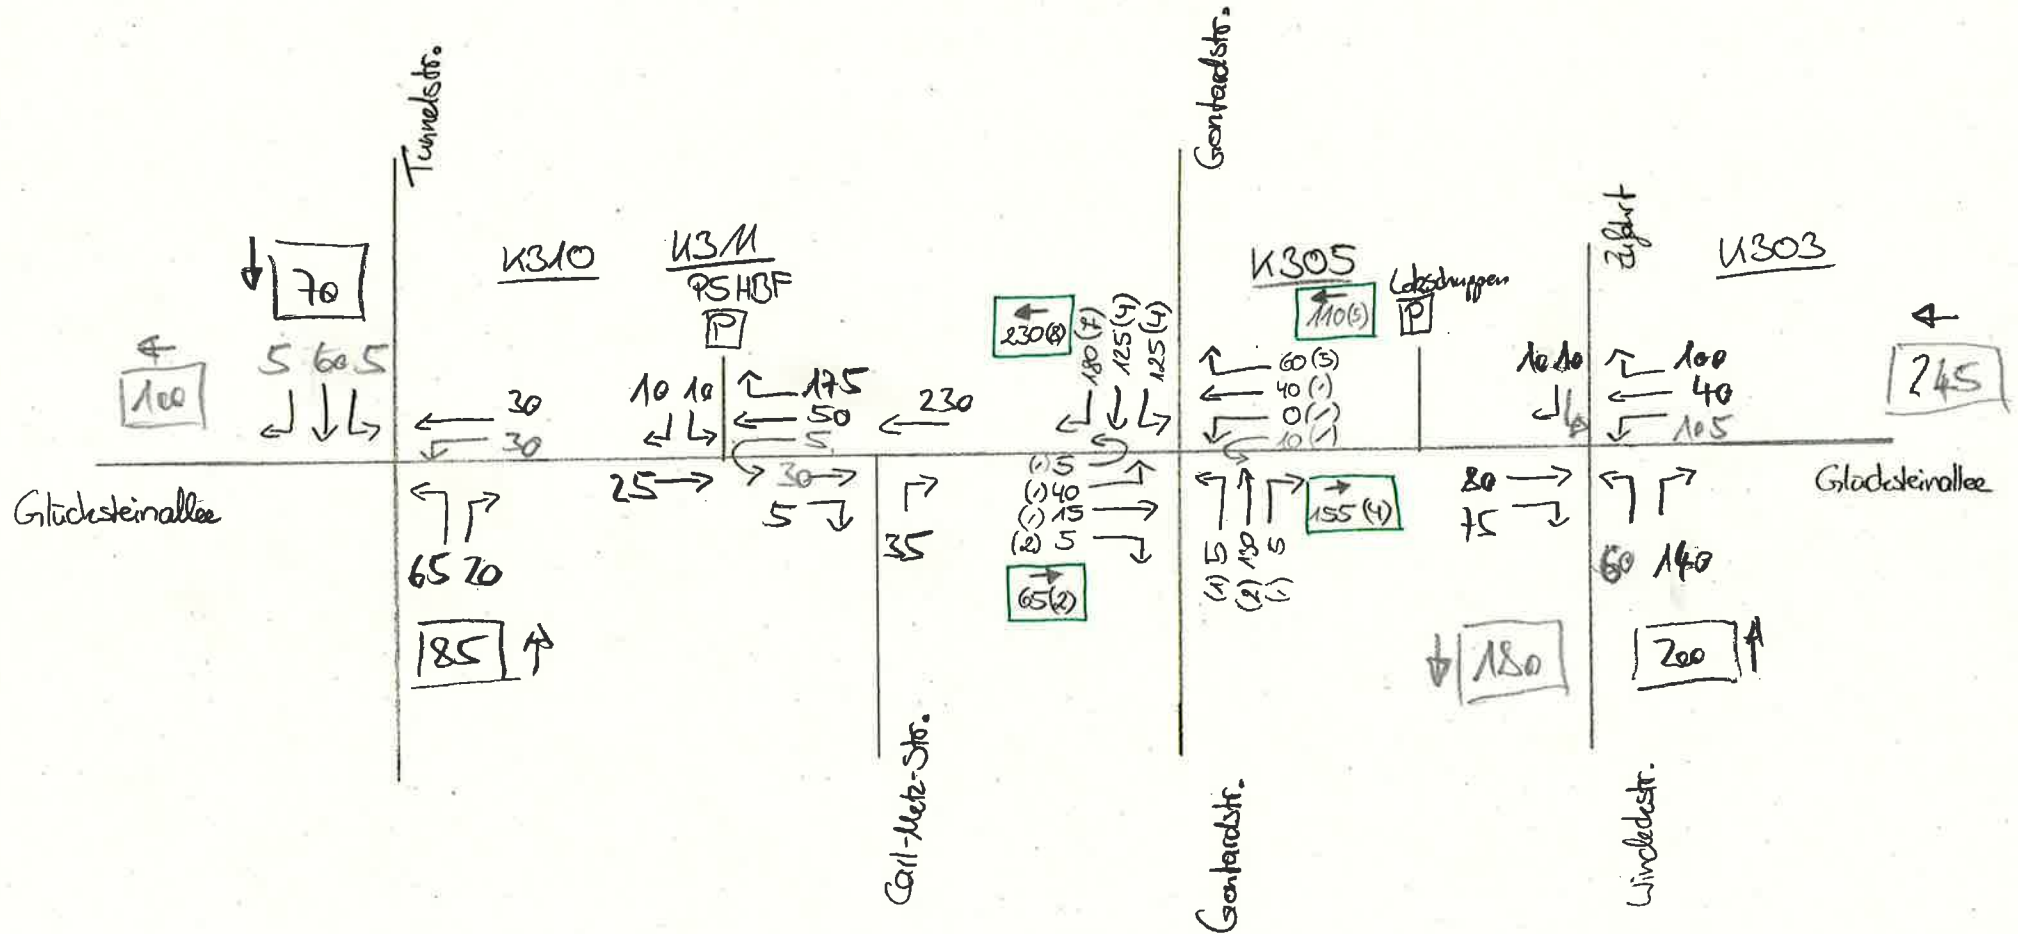 Tunnelstr.
Gontardstr.
Zufahrt
K310
K311
PSHBF
P
K305
Lokschuppen
P
K303
70
100
5 60 5
30
30
10 10
175
50
5
230
230(8)
180(7)
125(4)
125(4)
110(5)
60(3)
40(1)
0(1)
10(1)
10 10
100
40
105
245
Glücksteinallee
25
30
5
35
(1) 5
(1) 40
(1) 15
(2) 5
65(2)
(1) 5
(2) 130
(1) 5
155(4)
80
75
Glücksteinallee
65 20
85
60 140
180
200
Carl-Metz-Str.
Gontardstr.
Windeckstr.